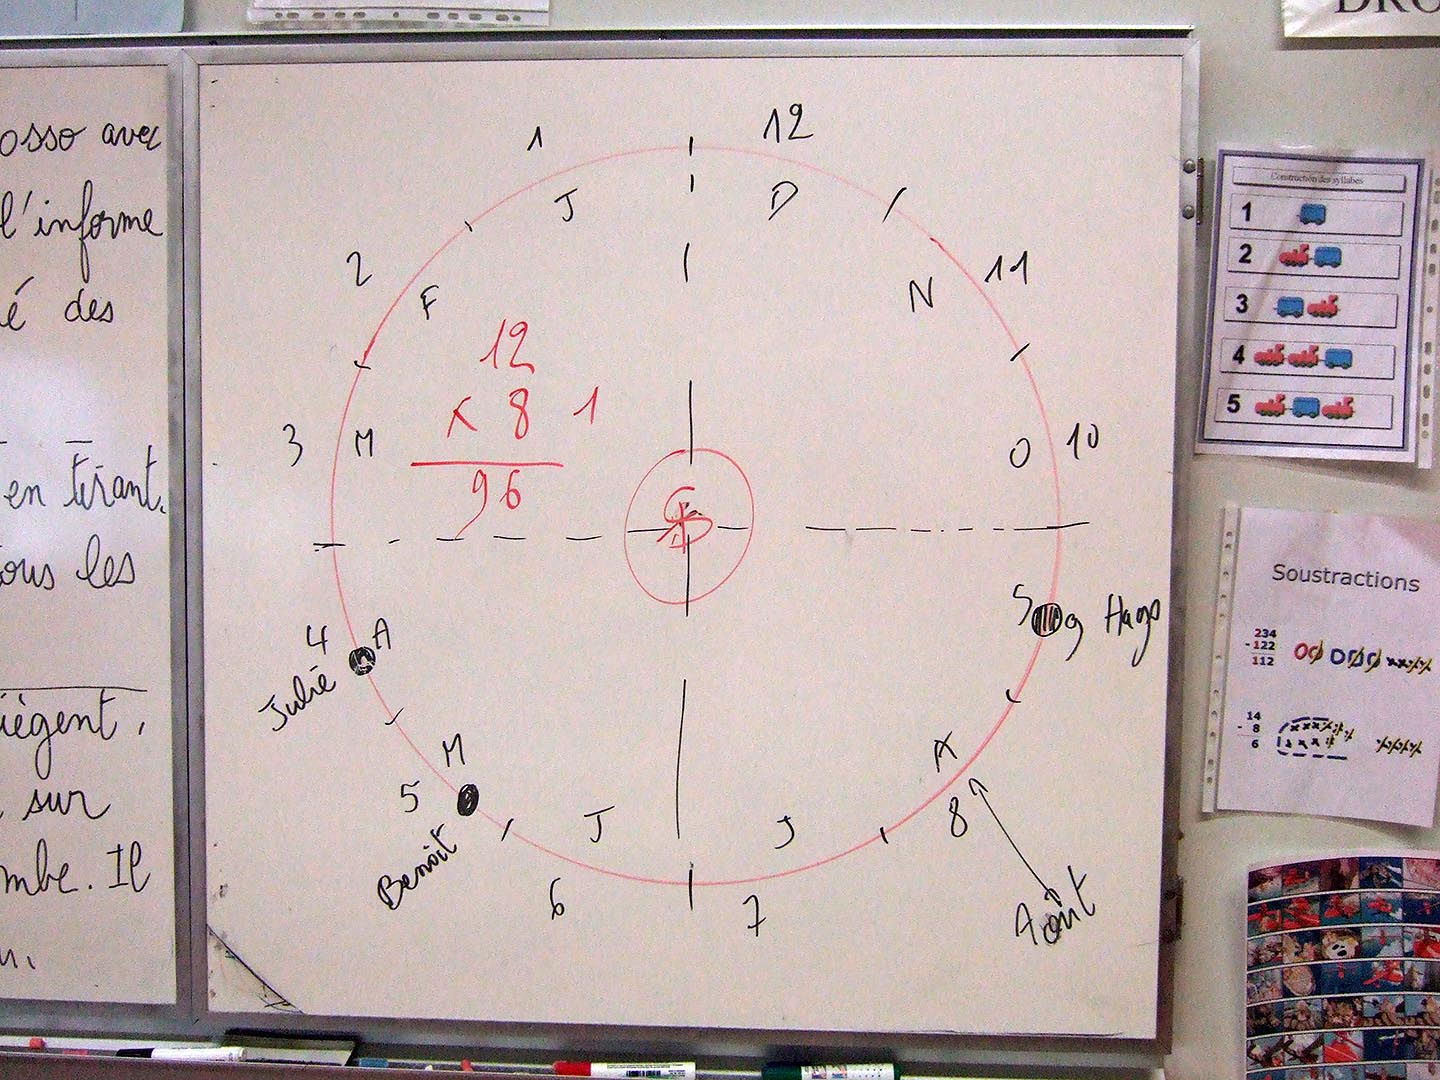 osso avec
l'informe
é des
en tirant.
ous les
iègent,
sur
mbe. Il
1
12
J
D
2
F
N
11
12
x 8 1
96
3
M
O
10
4
A
Julie
S
9
Hugo
M
5
Benoît
J
J
A
8
6
7
Août
DRO
Construction des syllabes
1
2
3
4
5
Soustractions
234
- 122
112
14
- 8
6